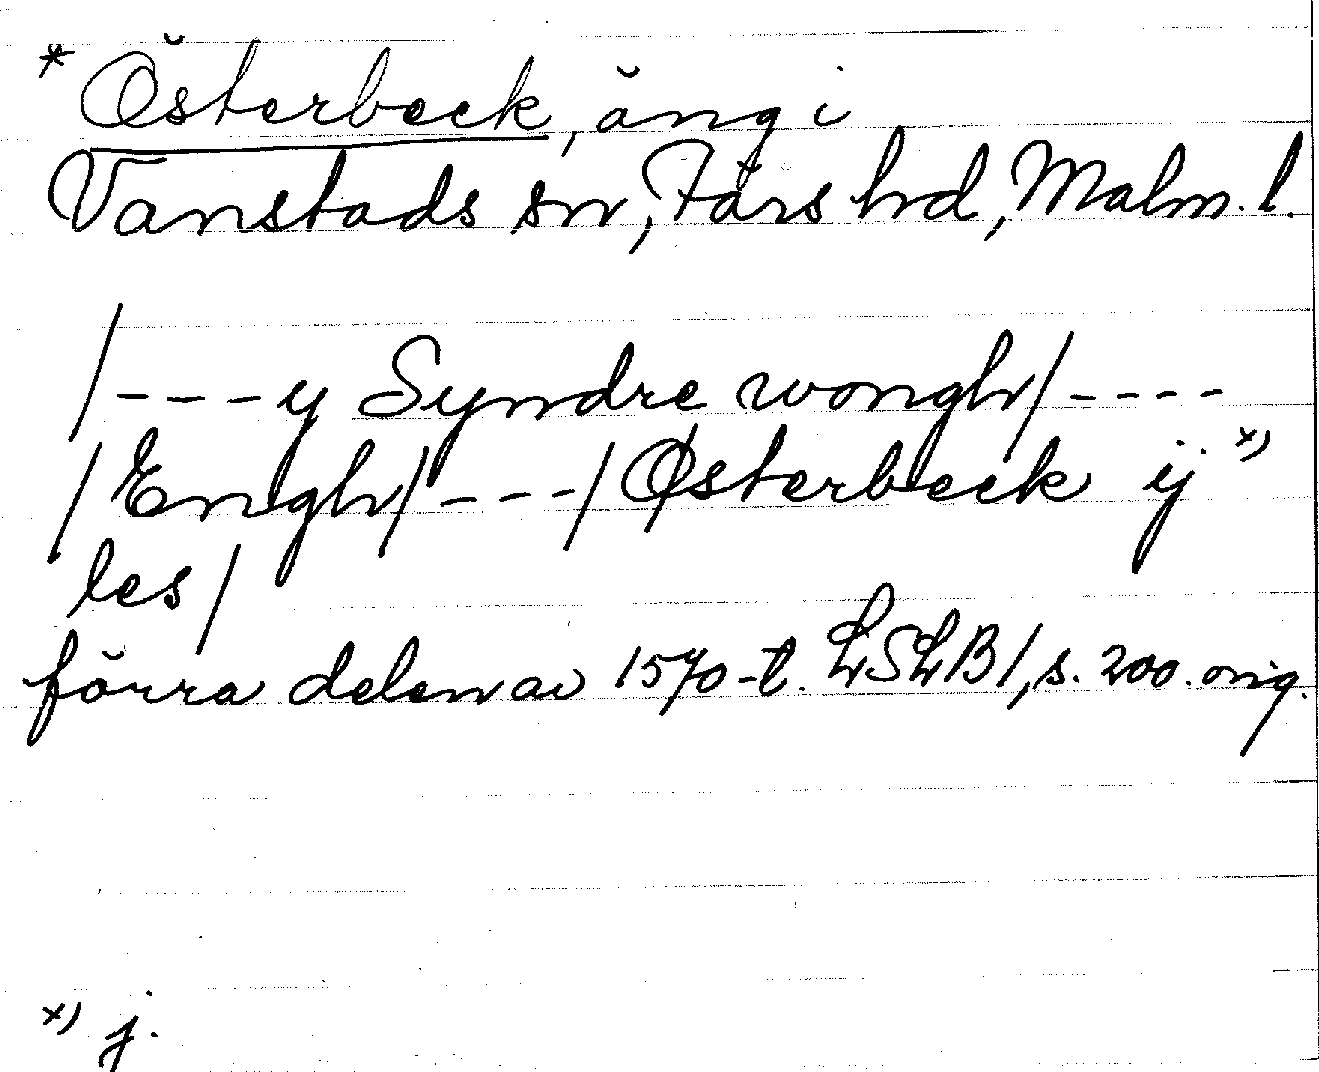 * Österbeck, äng i
Vanstads sn, Färs hd, Malm. l.
/---y Syndre wongh/----
/Engh/---/Østerbeck ij x)
les/
förra delen av 1570-t. LSLB 1, s. 200. orig.
x) j.